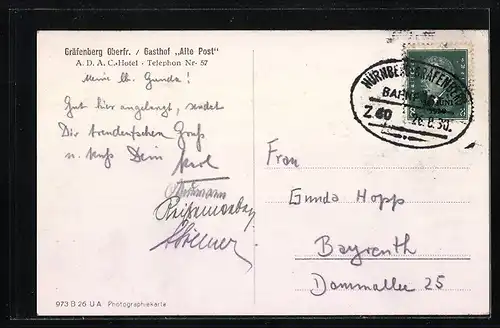 Gräfenberg Oberfr. / Gasthof „Alte Post"
A. D. A. C.-Hotel - Telephon Nr. 57
Meine lb. Gunda!
Gut hier angelangt, sendet
Dir treudeutschen Gruß
u. Kuß Dein
NÜRNBERG-GRÄFENBERG
BAHNPOST
Z.60
26.6.30.
Frau
Gunda Hopp
Bayreuth
Dammallee 25
973 B 26 U A Photographiekarte